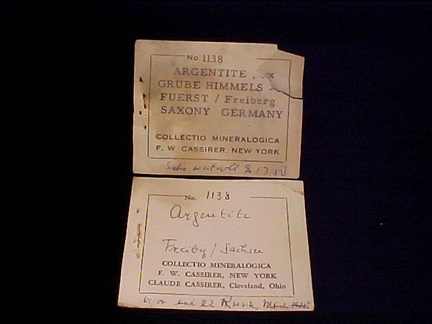 No. 1138
ARGENTITE, xx
GRUBE HIMMELS -
FUERST / Freiberg
SAXONY GERMANY
COLLECTIO MINERALOGICA
F. W. CASSIRER, NEW YORK
No. 1138
Argentite
Freibg / Sachsen
COLLECTIO MINERALOGICA
F. W. CASSIRER, NEW YORK
CLAUDE CASSIRER, Cleveland, Ohio